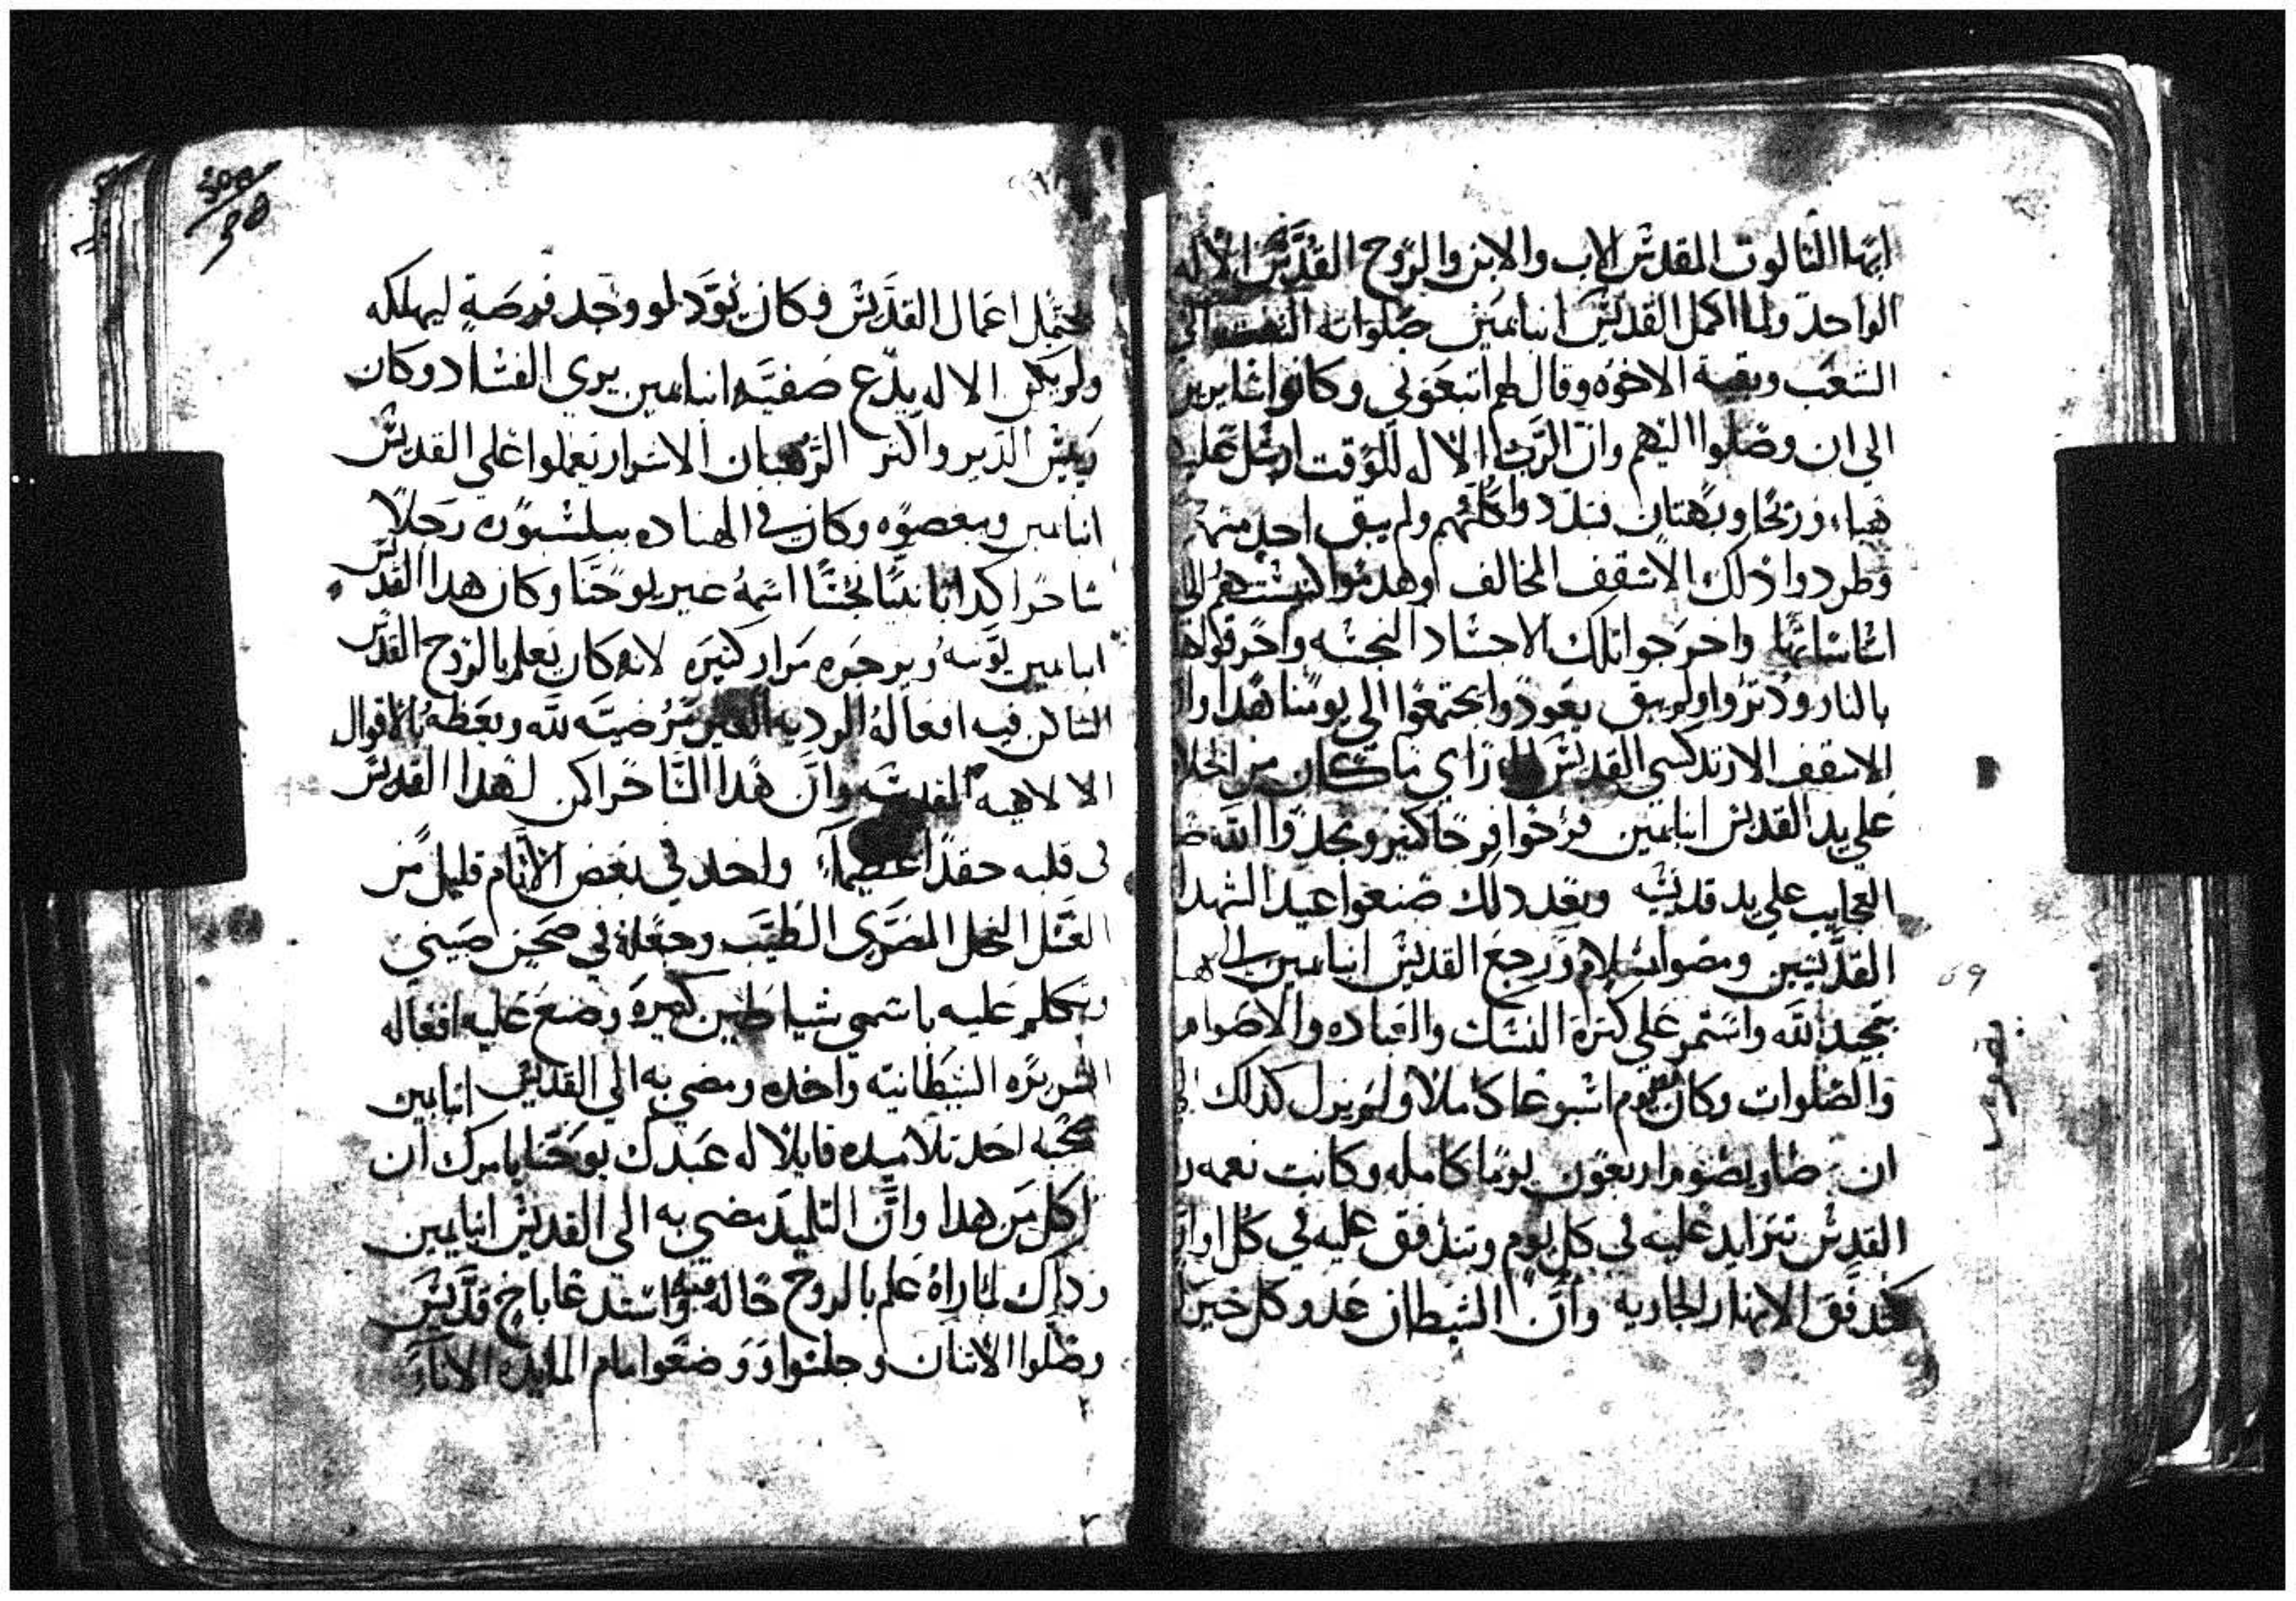 ايها الثالوت المقدس الاب والابن والروح القدس الاله
الواحد ولما اكمل القديس انبا يمين صلواته التفت الى
الشعب وبقية الاخوه وقال لهم اتبعوني وكانوا سايرين
الى ان وصلوا اليهم وان الرب الاله للوقت ارسل عليه
هباء وزنحا وبهتان فتبددوا كلهم ولم يبق احد منهم
وطردوا ذلك الاسقف المخالف وهدموا الى
اساساتها واخرجوا تلك الاجساد النجسه واحرقوها
بالنار ودتروا ولم يبق يعودوا يجتمعوا الى يومنا هدا وان
الاسقف الارتدكسي القديس راي ما كان من الخلاص
على يد القديس انبا يمين فرحوا فرحا كثير ومجدوا الله
العجايب على يد قديسه وبعد دلك صنعوا عيد الشهدا
القديسين ومضوا بسلام ورجع القديس انبا يمين الى
بتمجيد الله واستمر على كترة النسك والعباده والاصوام
والصلوات وكان يصوم اسبوعا كاملا ولم يزل كدلك الى
ان صار يصوم اربعون يوما كامله وكانت نعمه
القدس تتزايد عليه في كل يوم وتتدفق عليه في كل اوان
كتدفق الانهار الجاريه وان الشيطان عدو كل خير لم
69
يحتمل اعمال القديس وكان يود لو وجد فرصة ليهلكه
ولم يكن الاله يدع صفيه انبا يمين يري الفساد وكان
ريس الدير واكتر الرهبان الاشرار يعملوا على القديس
انبا يمين ويبغضوه وكان في الهناده ببلشبون رجلا
ساحرا كدابا نبيا نجسا اسمه عبر يوحنا وكان هدا القديس
انبا يمين يوبخه ويزجره مرار كتيره لانه كان يعلم بالروح القدس
الساكن فيه افعاله الرديه الغير مرضيه لله ويعظه بالاقوال
الالاهيه المقدسه وان هدا الساحر اكن لهدا القديس
في قلبه حقدا عظيما واخد في بعض الايام قليل من
العسل النحل المصري الطيب وجعله في صحن صيني
وتكلم عليه باسمي شياطين كتيره وصنع عليه افعاله
الشريره الشيطانيه واخده ومضى به الي القديس انبا يمين
صحبه احد تلاميده قايلا له عبدك يوحنا يامرك ان
تاكل من هدا وان التلميد مضي به الى القديس انبا يمين
وداك لما راه علم بالروح حاله فيه واستدعا باخ قديس
وصلوا الاتنان وجلسوا ووضعوا امام المايده الاناء